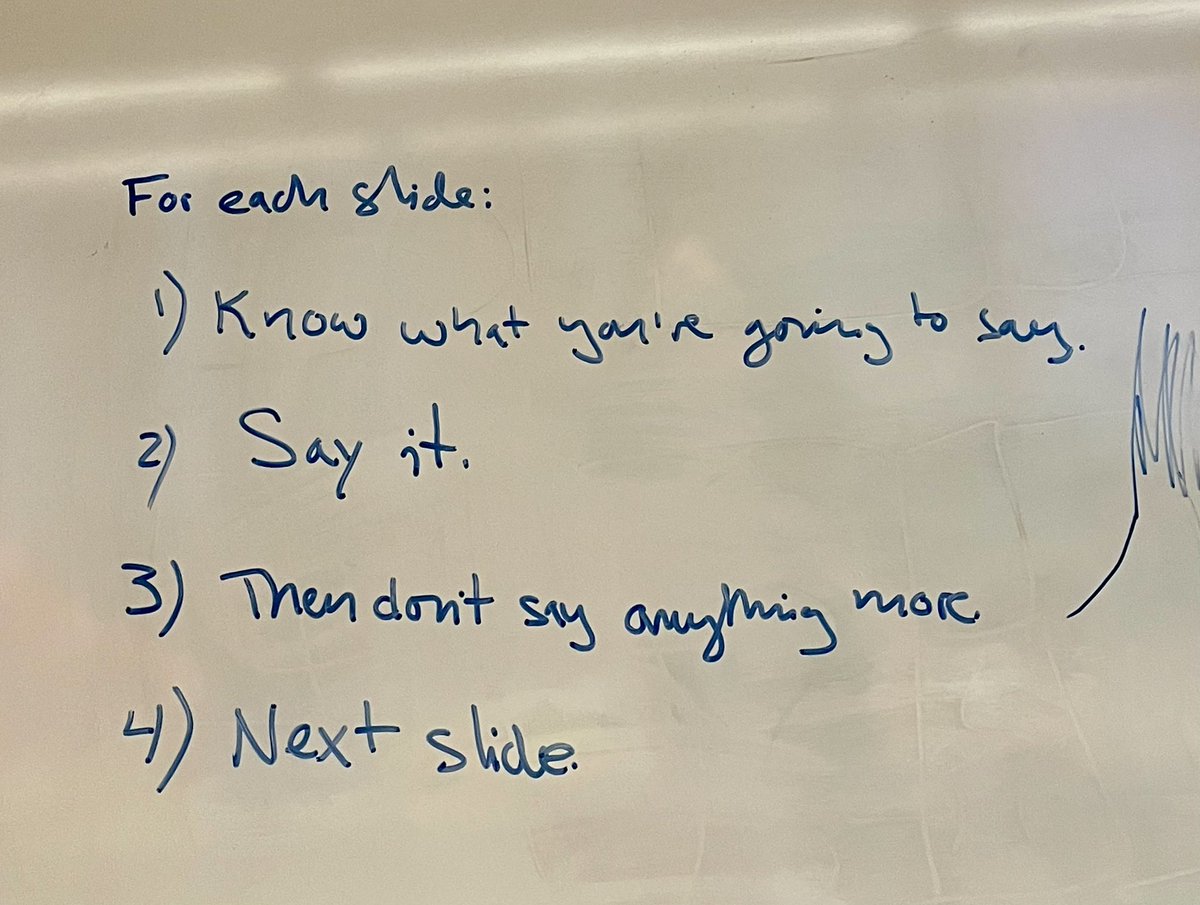 For each slide:
1) Know what you're going to say.
2) Say it.
3) Then don't say anything more.
4) Next slide.